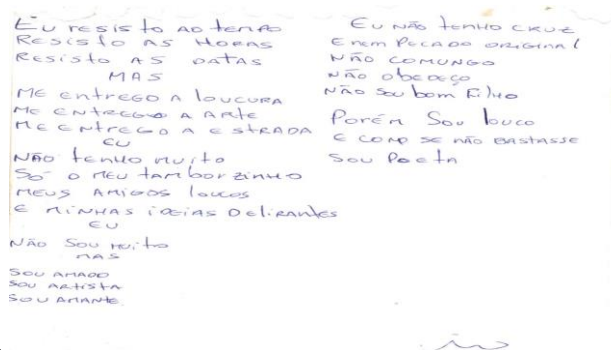 EU RESISTO AO TEMPO
RESISTO AS HORAS
RESISTO AS DATAS
MAS
ME ENTREGO A LOUCURA
ME ENTREGO A ARTE
ME ENTREGO A ESTRADA
EU
NÃO TENHO MUITO
SÓ O MEU TAMBORZINHO
MEUS AMIGOS LOUCOS
E MINHAS IDEIAS DELIRANTES
EU
NÃO SOU MUITO
MAS
SOU AMADO
SOU ARTISTA
SOU AMANTE
EU NÃO TENHO CRUZ
E NEM PECADO ORIGINAL
NÃO COMUNGO
NÃO OBEDEÇO
NÃO SOU BOM FILHO
PORÉM SOU LOUCO
E COMO SE NÃO BASTASSE
SOU POETA